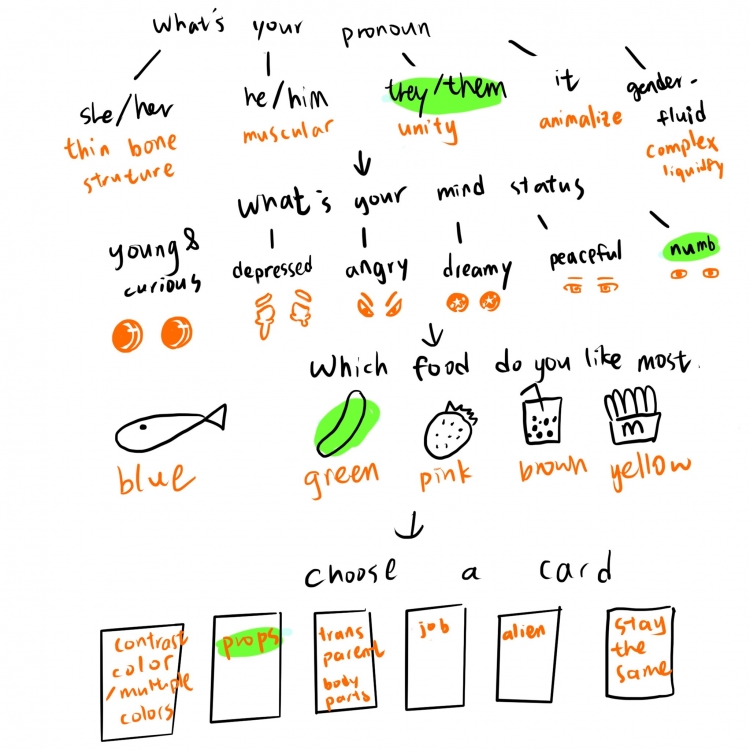 what's your pronoun
she/her
thin bone
struture
he/him
muscular
they/them
unity
it
animalize
gender-
fluid
complex
liquidfy
what's your mind status
young &
curious
depressed
angry
dreamy
peaceful
numb
Which food do you like most.
M
blue
green
pink
brown
yellow
choose a card
contrast
color
/multiple
colors
props
trans
parent
body
parts
job
alien
stay
the
same